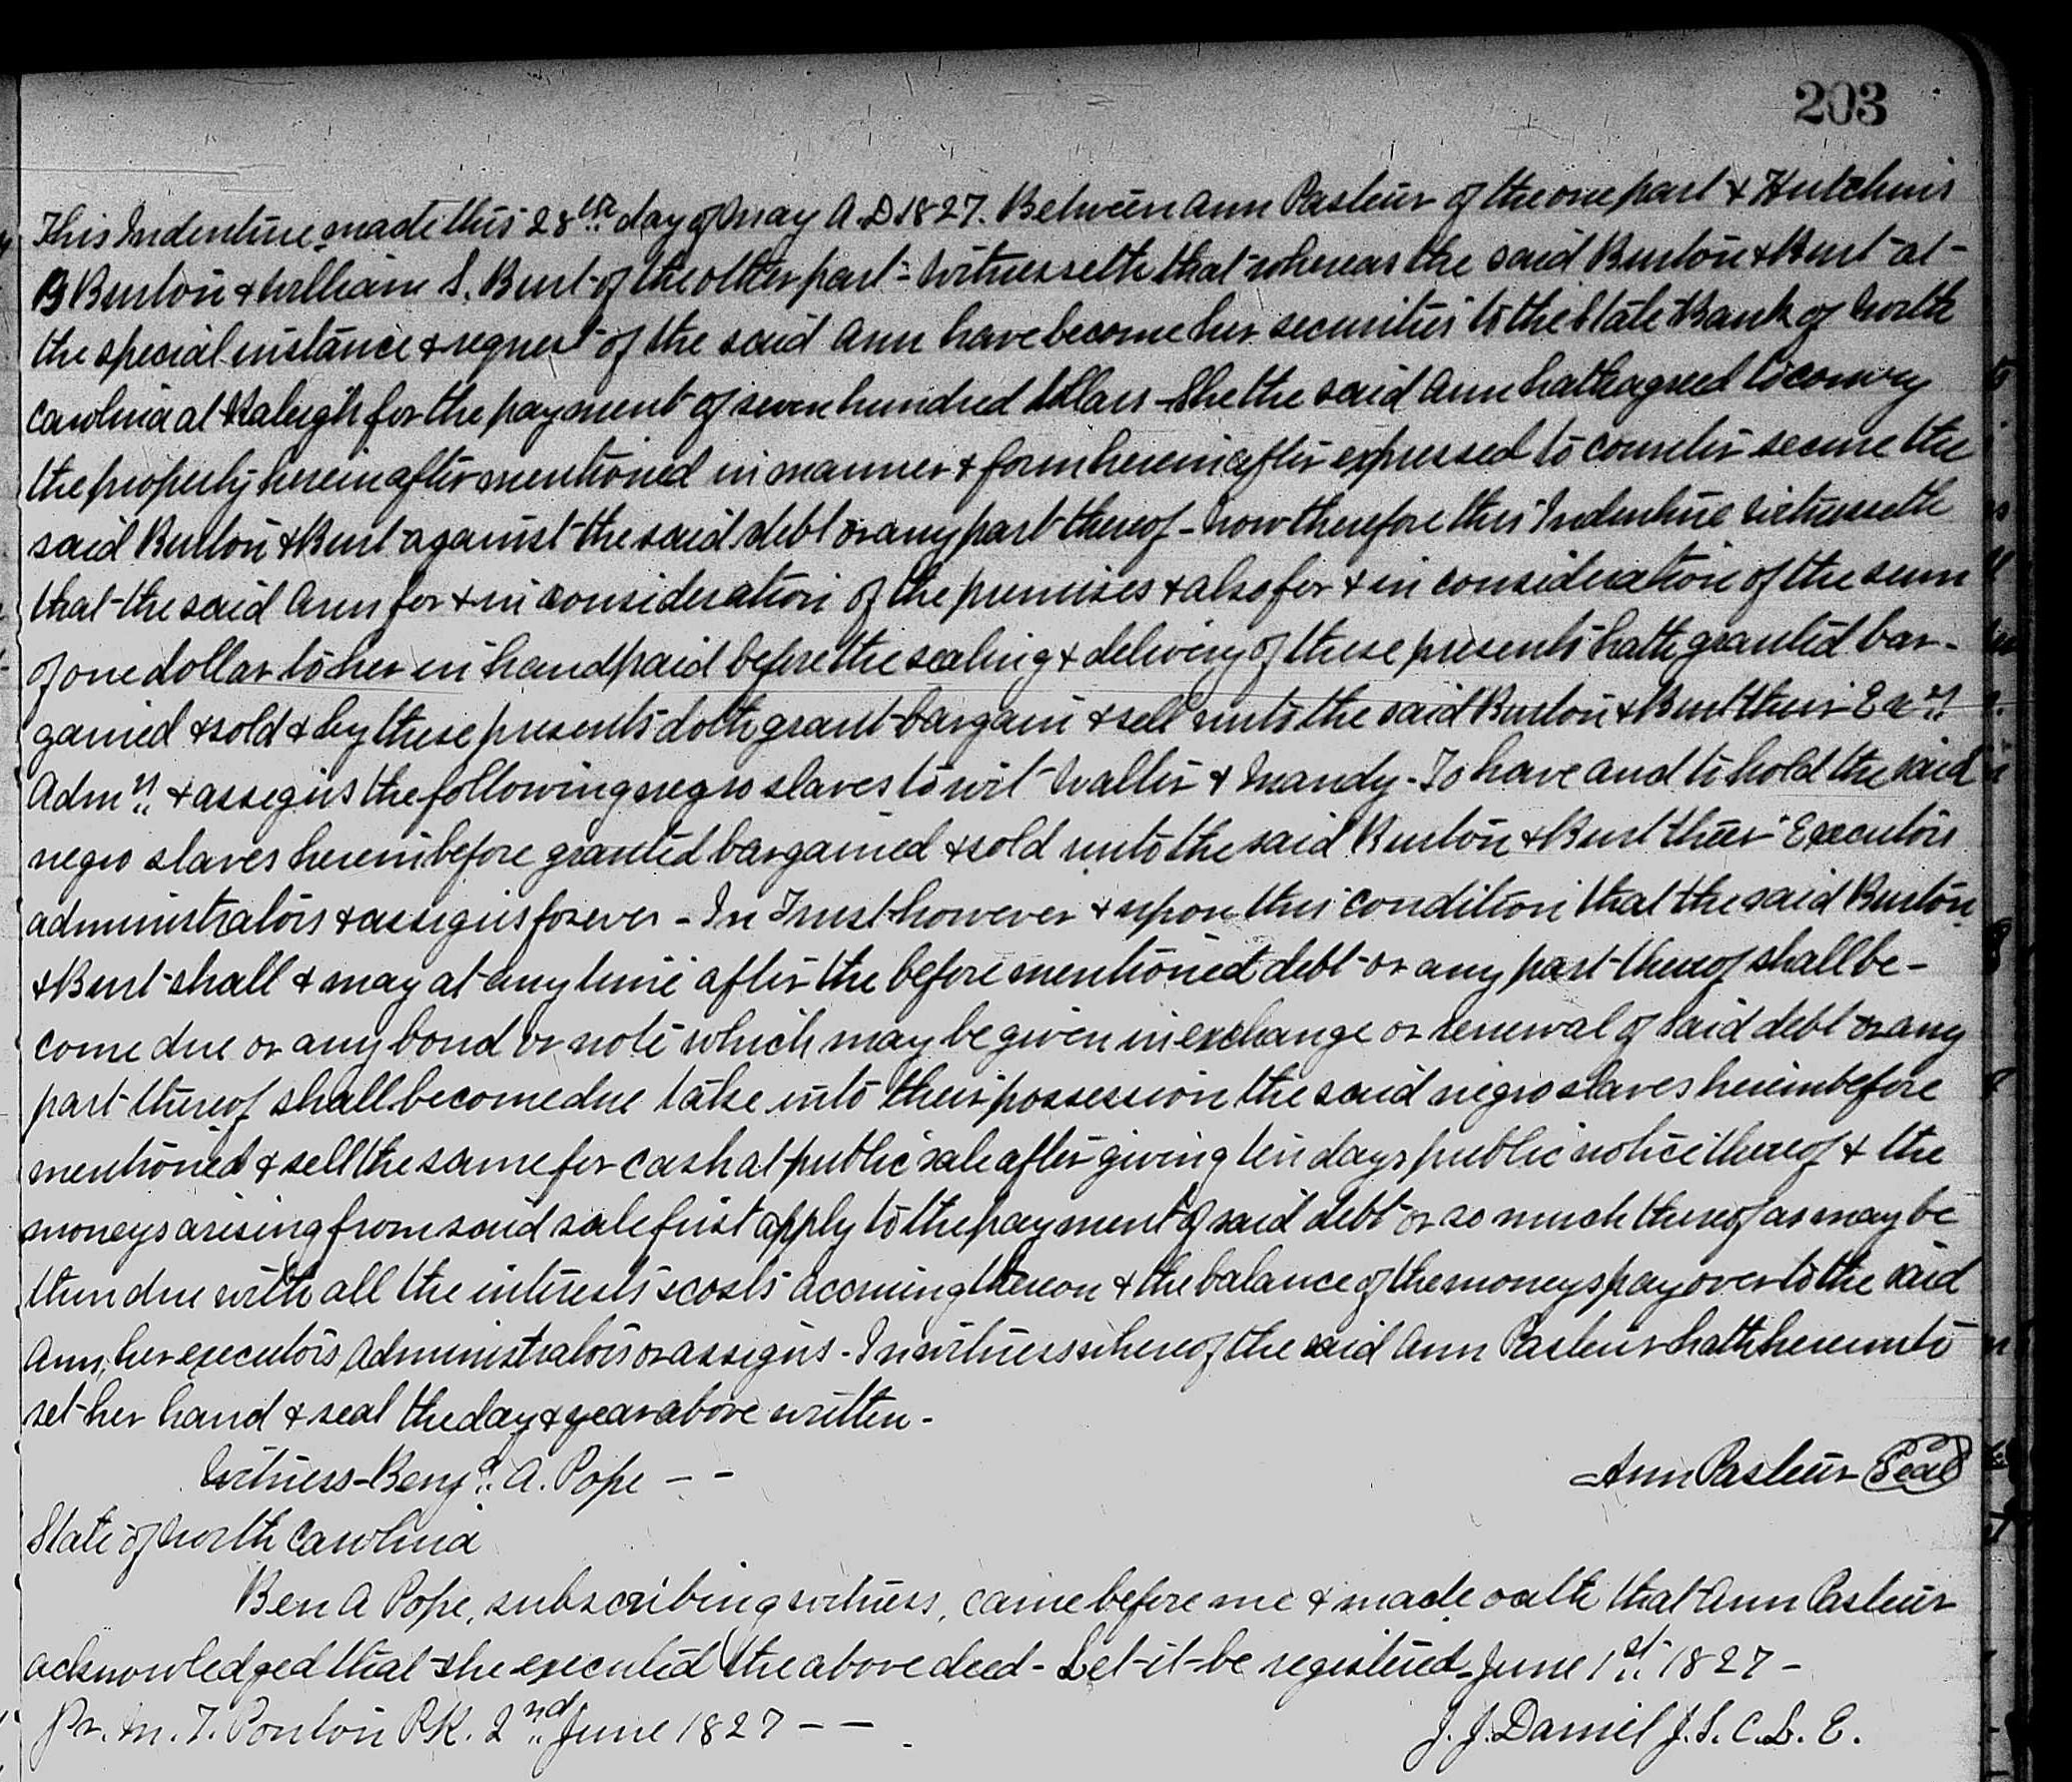 203
This Indenture made this 28th day of May A.D 1827. Between Ann Pasteur of the one part & Hutchins
B Burton & William S. Burt of the other part - Witnesseth that whereas the said Burton & Burt at
the special instance & request of the said Ann have become her securities to the State Bank of North
Carolina at Raleigh for the payment of seven hundred dollars - She the said Ann hath agreed to convey
the property hereinafter mentioned in manner & form hereinafter expressed to counter secure the
said Burton & Burt against the said debt or any part thereof - Now therefore this Indenture witnesseth
that the said Ann for & in consideration of the premises & also for & in consideration of the sum
of one dollar to her in hand paid before the sealing & delivery of these presents hath granted bar-
gained & sold & by these presents doth grant bargain & sell unto the said Burton & Burt their Exrs
Admrs & assigns the following negro slaves to wit Walter & Mandy - To have and to hold the said
negro slaves hereinbefore granted bargained & sold unto the said Burton & Burt their Executors
administrators & assigns forever - In Trust however & upon this condition that the said Burton
& Burt shall & may at any time after the before mentioned debt or any part thereof shall be-
come due or any bond or note which may be given in exchange or renewal of said debt or any
part thereof shall become due take into their possession the said negro slaves hereinbefore
mentioned & sell the same for cash at public sale after giving ten days public notice thereof & the
moneys arising from said sale first apply to the payment of said debt or so much thereof as may be
then due with all the interests & costs accruing thereon & the balance of the moneys pay over to the said
Ann, her executors administrators or assigns - In witness whereof the said Ann Pasteur hath hereunto
set her hand & seal the day & year above written -
Witness - Benjn. A. Pope - -
Ann Pasteur Seal
State of North Carolina
Ben A Pope, subscribing witness, came before me & made oath that Ann Pasteur
acknowledged that she executed the above deed - Let it be registered - June 1st 1827 -
Pr. M. T. Ponton P.R. 2nd June 1827 - -
J. J. Daniel J. S. C. L. E.